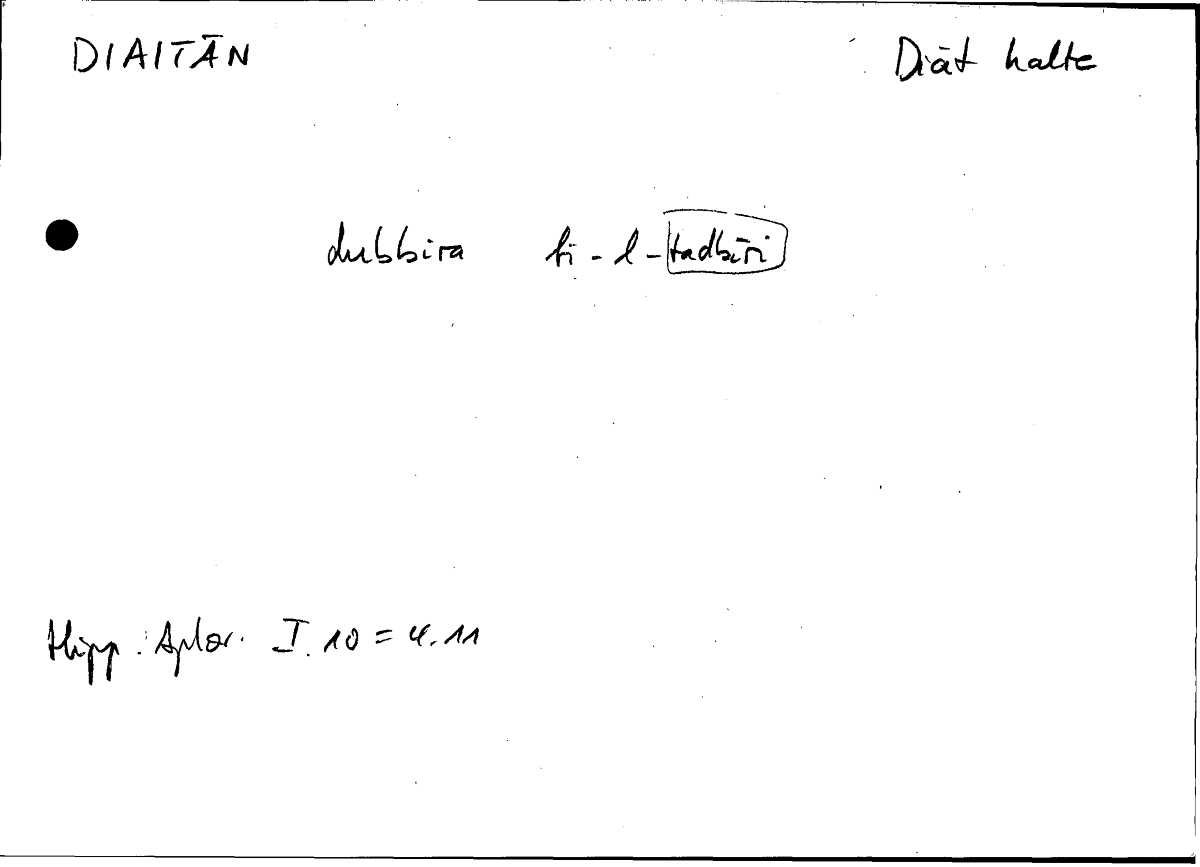 DIAITĀN Diät halte
dubbira bi-l-tadbīri
Hipp. Aphor. I. 10 = 4.11